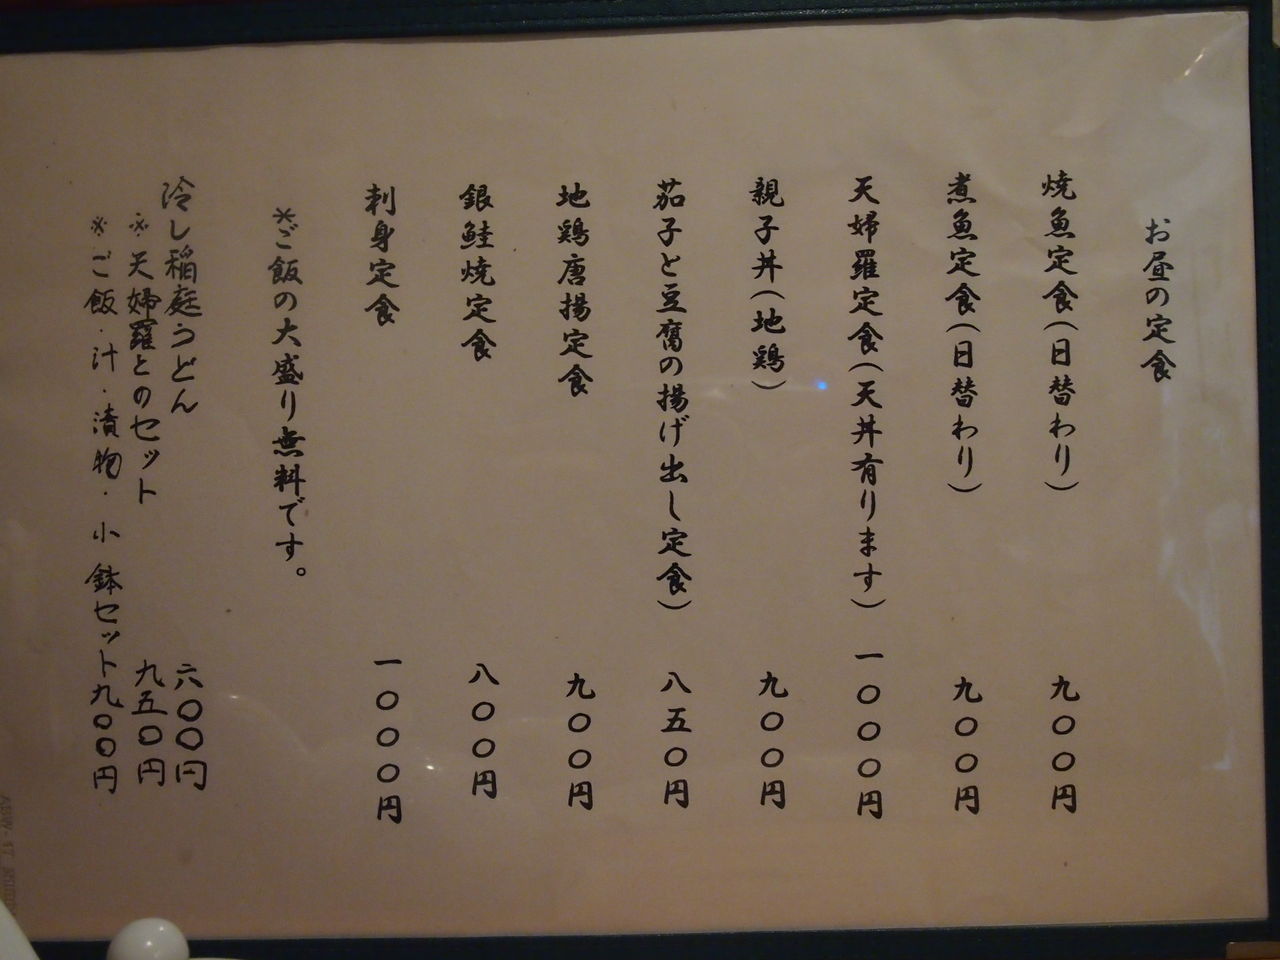 お昼の定食
焼魚定食(日替わり) 九〇〇円
煮魚定食(日替わり) 九〇〇円
天婦羅定食(天丼有ります) 一〇〇〇円
親子丼(地鶏) 九〇〇円
茄子と豆腐の揚げ出し定食) 八五〇円
地鶏唐揚定食 九〇〇円
銀鮭焼定食 八〇〇円
刺身定食 一〇〇〇円
*ご飯の大盛り無料です。
冷し稲庭うどん 六〇〇円
※天婦羅とのセット 九五〇円
※ご飯・汁・漬物・小鉢セット九〇〇円